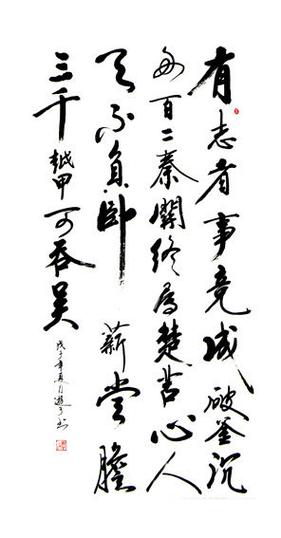 有志者事竟成破釜沉
舟百二秦關終属楚苦心人
天不負卧薪嘗膽
三千越甲可吞吴
戊子年夏月